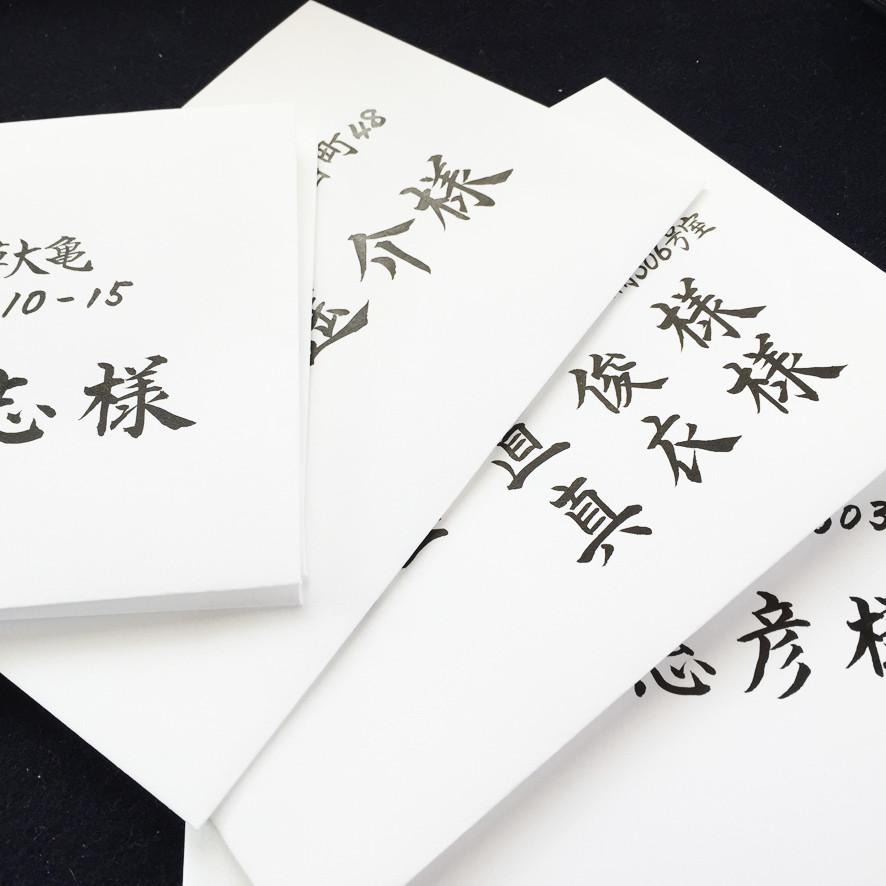 大亀
10-15
志様
町48
介様
306号室
直俊様
真衣様
03
志彦様